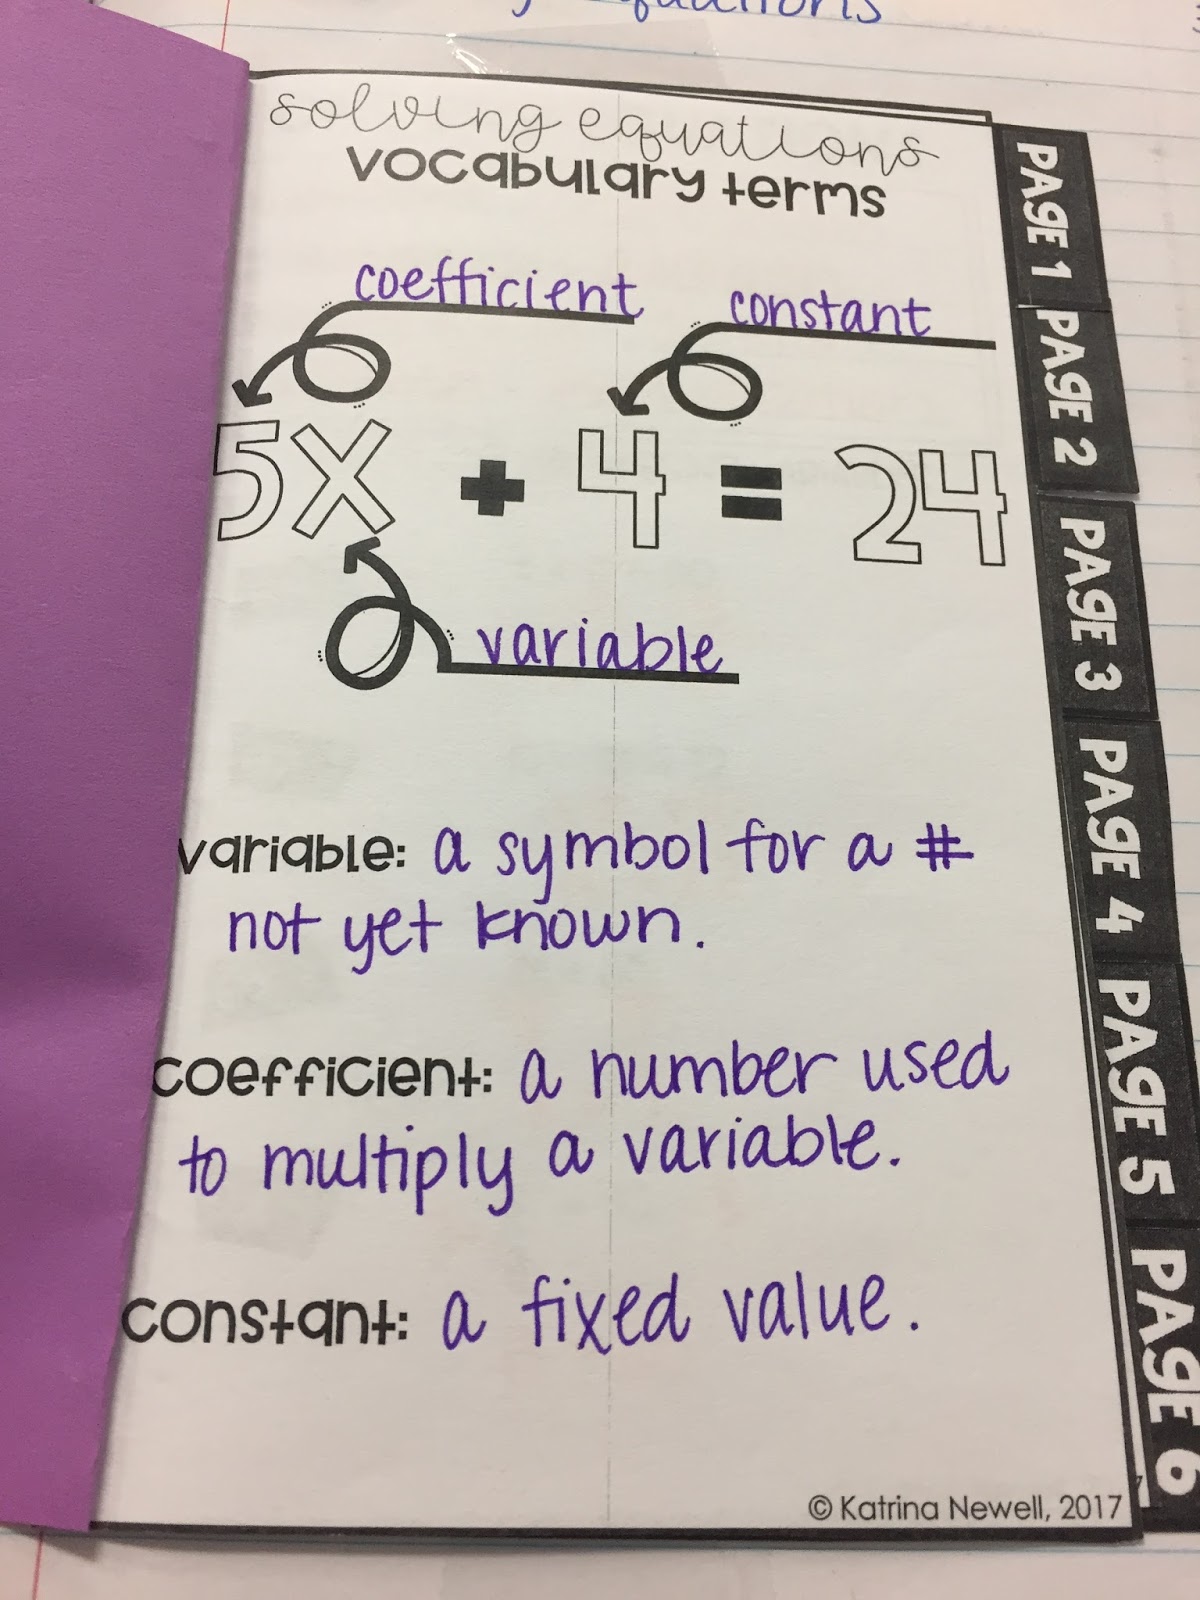 equations
solving equations
vocabulary terms
coefficient
constant
5x + 4 = 24
variable
variable: a symbol for a #
not yet known.
coefficient: a number used
to multiply a variable.
constant: a fixed value.
© Katrina Newell, 2017
PAGE 1
PAGE 2
PAGE 3
PAGE 4
PAGE 5
PAGE 6